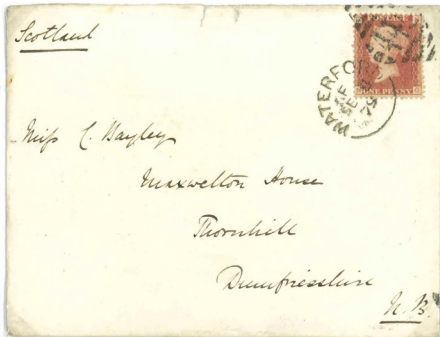 Scotland
WATERFORD
SE
75
ONE PENNY
Miss C. Bayley
Maxwelton House
Thornhill
Dumfriesshire
N.B.